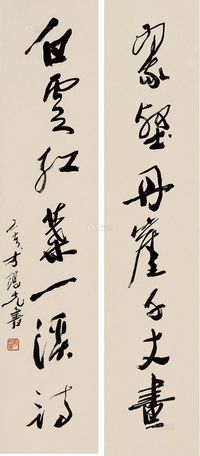 翠壁丹崖千丈畫
白雲紅葉一溪詩